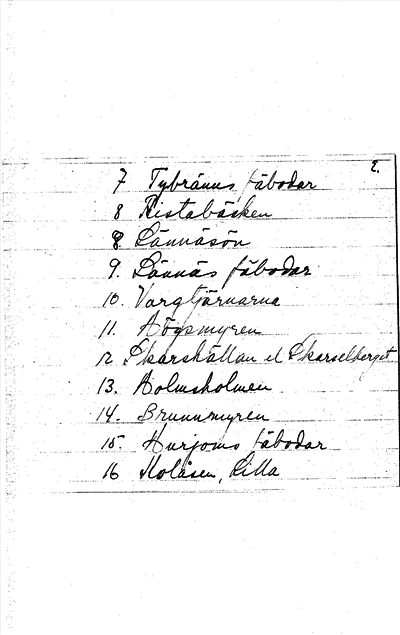 2.
7 Tybränns fäbodar
8 Ristabäcken
8. Lännäsön
9. Lännäs fäbodar
10. Vargtjärnarna
11. Högsmyren
12 Skarshällan el Skarselberget
13. Holmsholmen
14. Brunnmyren
15. Hurjoms fäbodar
16 Holåsen, Lilla